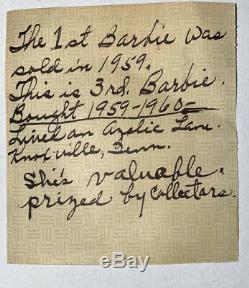 The 1st Barbie was
sold in 1959.
This is 3rd. Barbie.
Bought 1959-1960
Lived on Azalie Lane.
Knoxville, Tenn.
She's valuable.
prized by collectors.
ebay